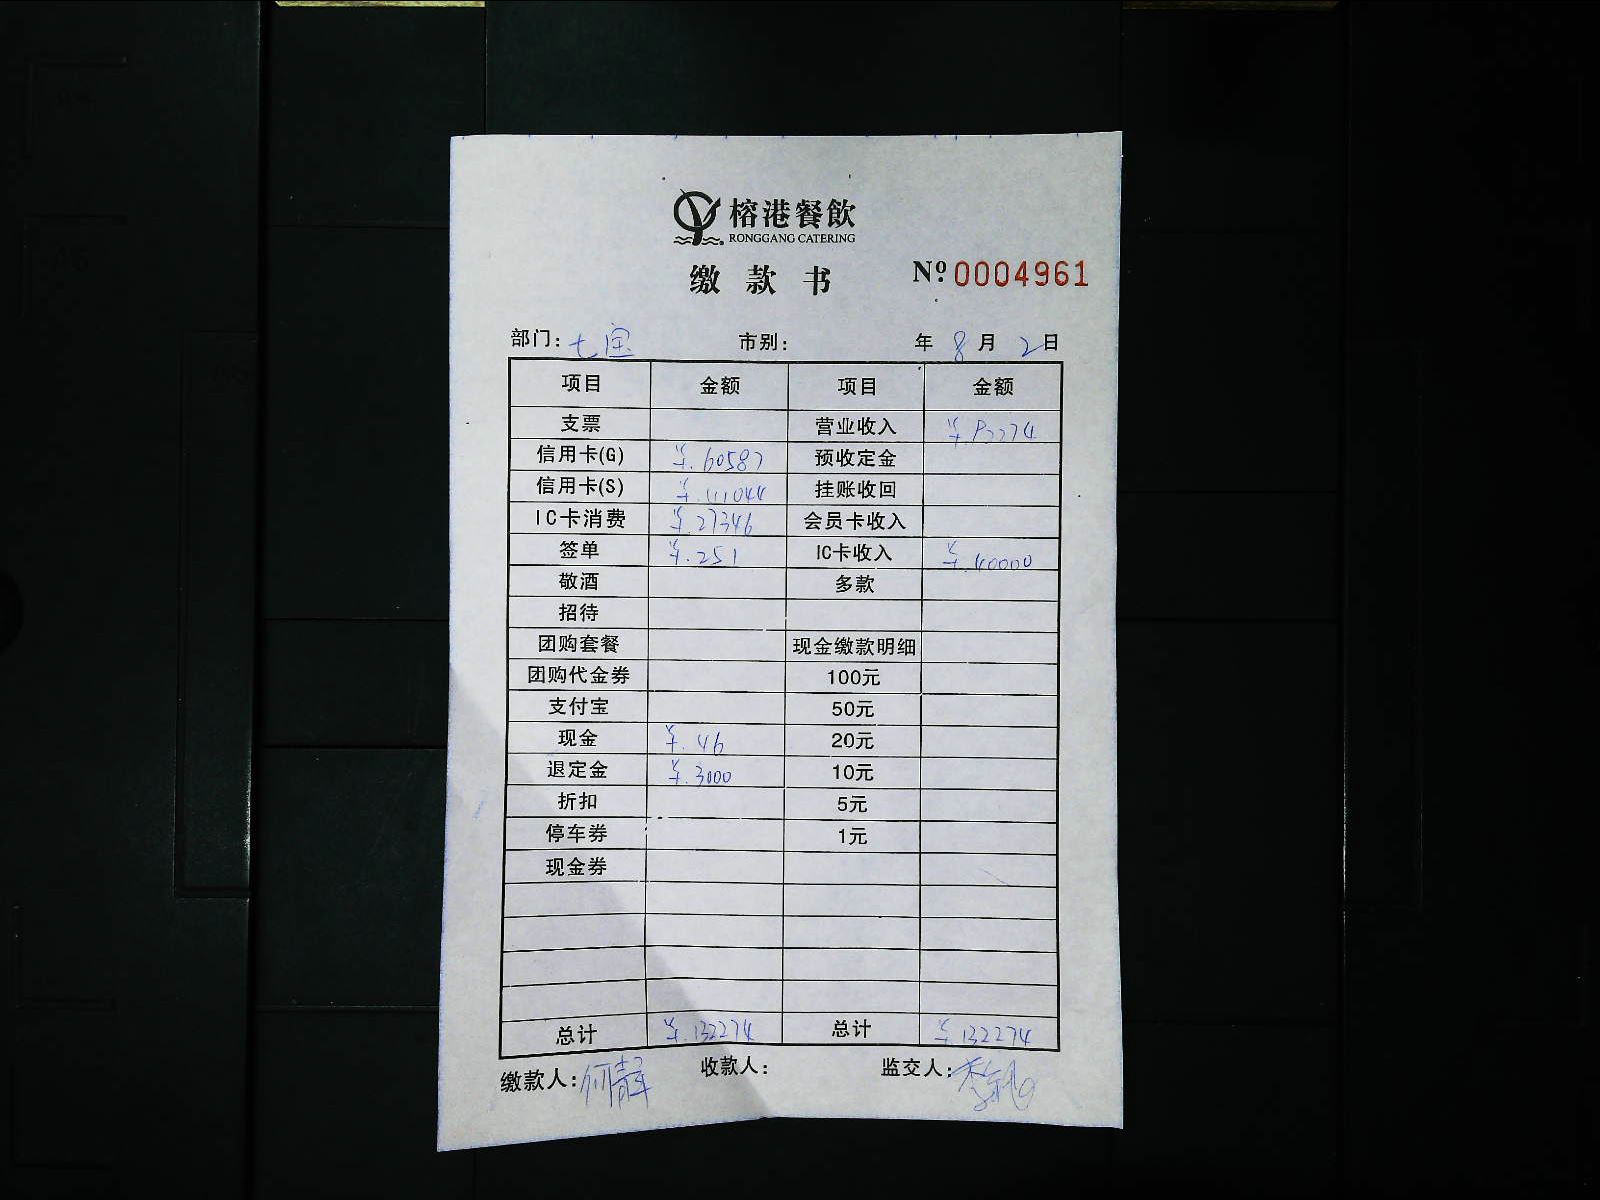 榕港餐飲
RONGGANG CATERING
缴款书 Nº 0004961
部门: 七宝 市别: 年 8 月 2 日
项目 金额 项目 金额
支票 营业收入 ¥.92274
信用卡(G) ¥.60587 预收定金
信用卡(S) ¥.41044 挂账收回
IC卡消费 ¥.27346 会员卡收入
签单 ¥.251 IC卡收入 ¥.40000
敬酒 多款
招待
团购套餐 现金缴款明细
团购代金券 100元
支付宝 50元
现金 ¥.46 20元
退定金 ¥.3000 10元
折扣 5元
停车券 1元
现金券
总计 ¥.132274 总计 ¥.132274
缴款人: 何静 收款人: 监交人: